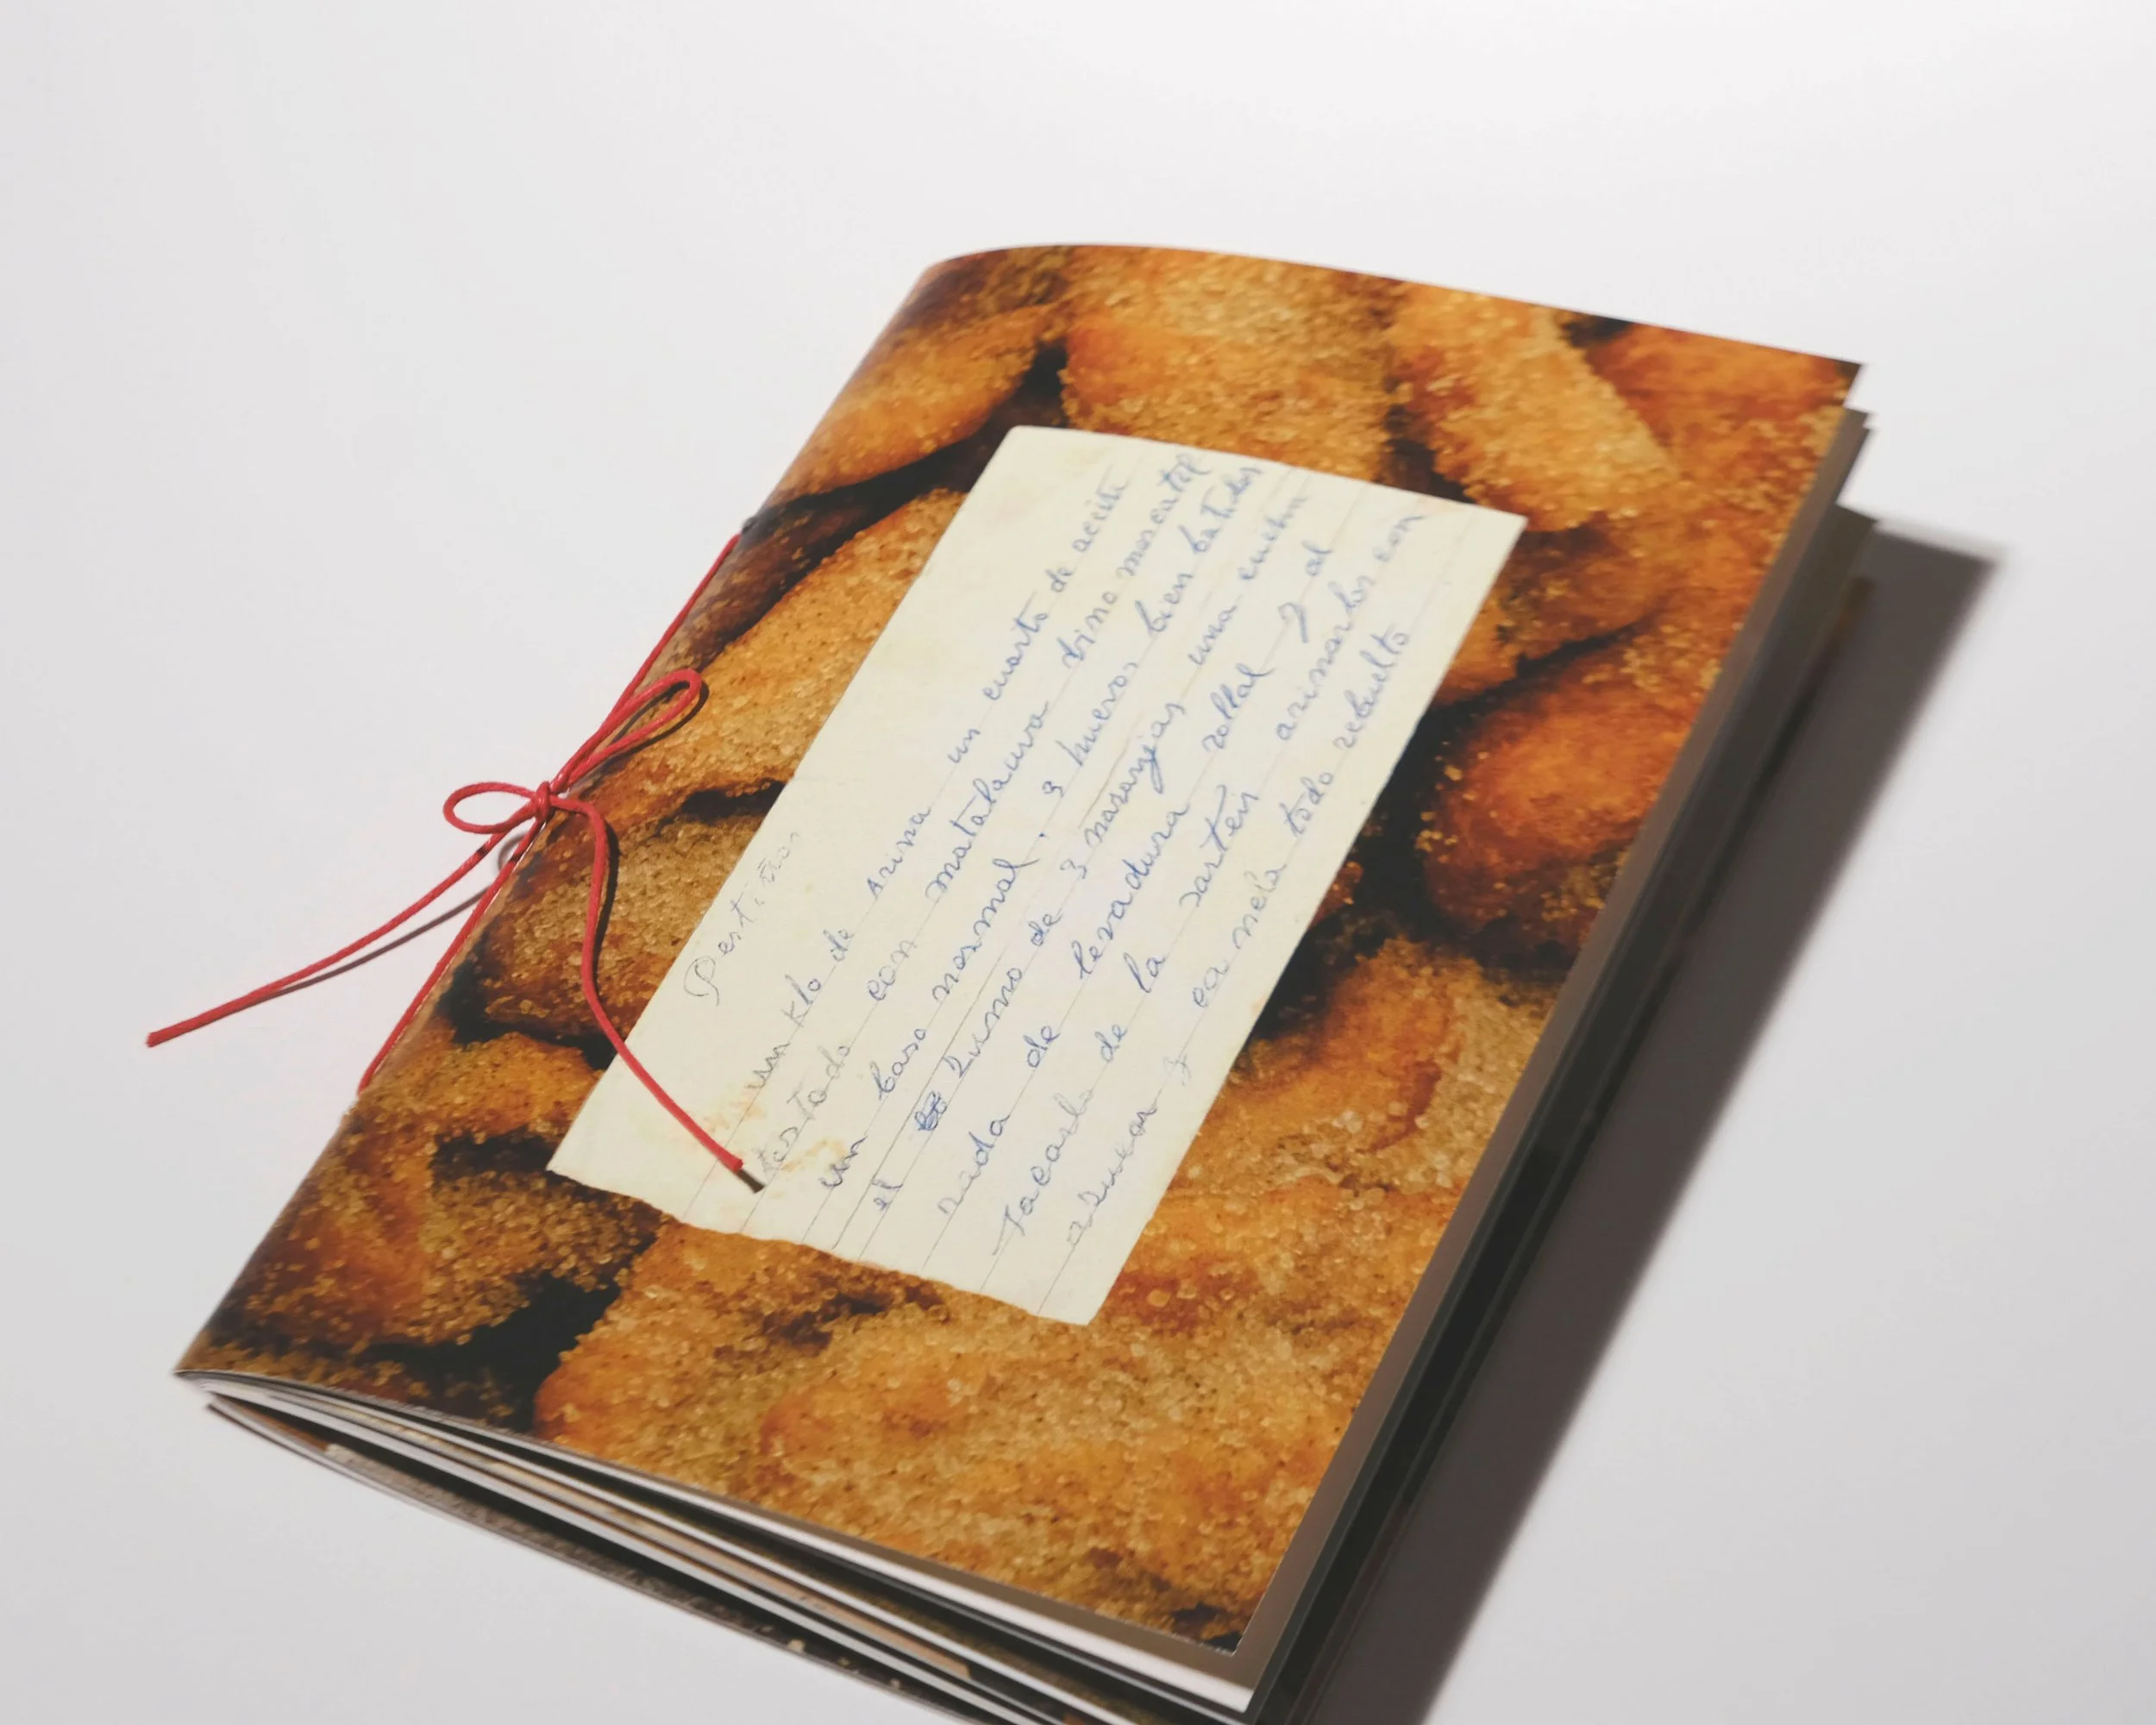 Pestiños
un klo de arina un cuarto de aceite
tostado con matalauva vino moscatel
un baso normal. 3 huevos bien batidos
el zumo de 3 naranjas una cucha
rada de levadura rollal y al
sacarlo de la sarten arinarlos con
azucar y canela todo rebuelto